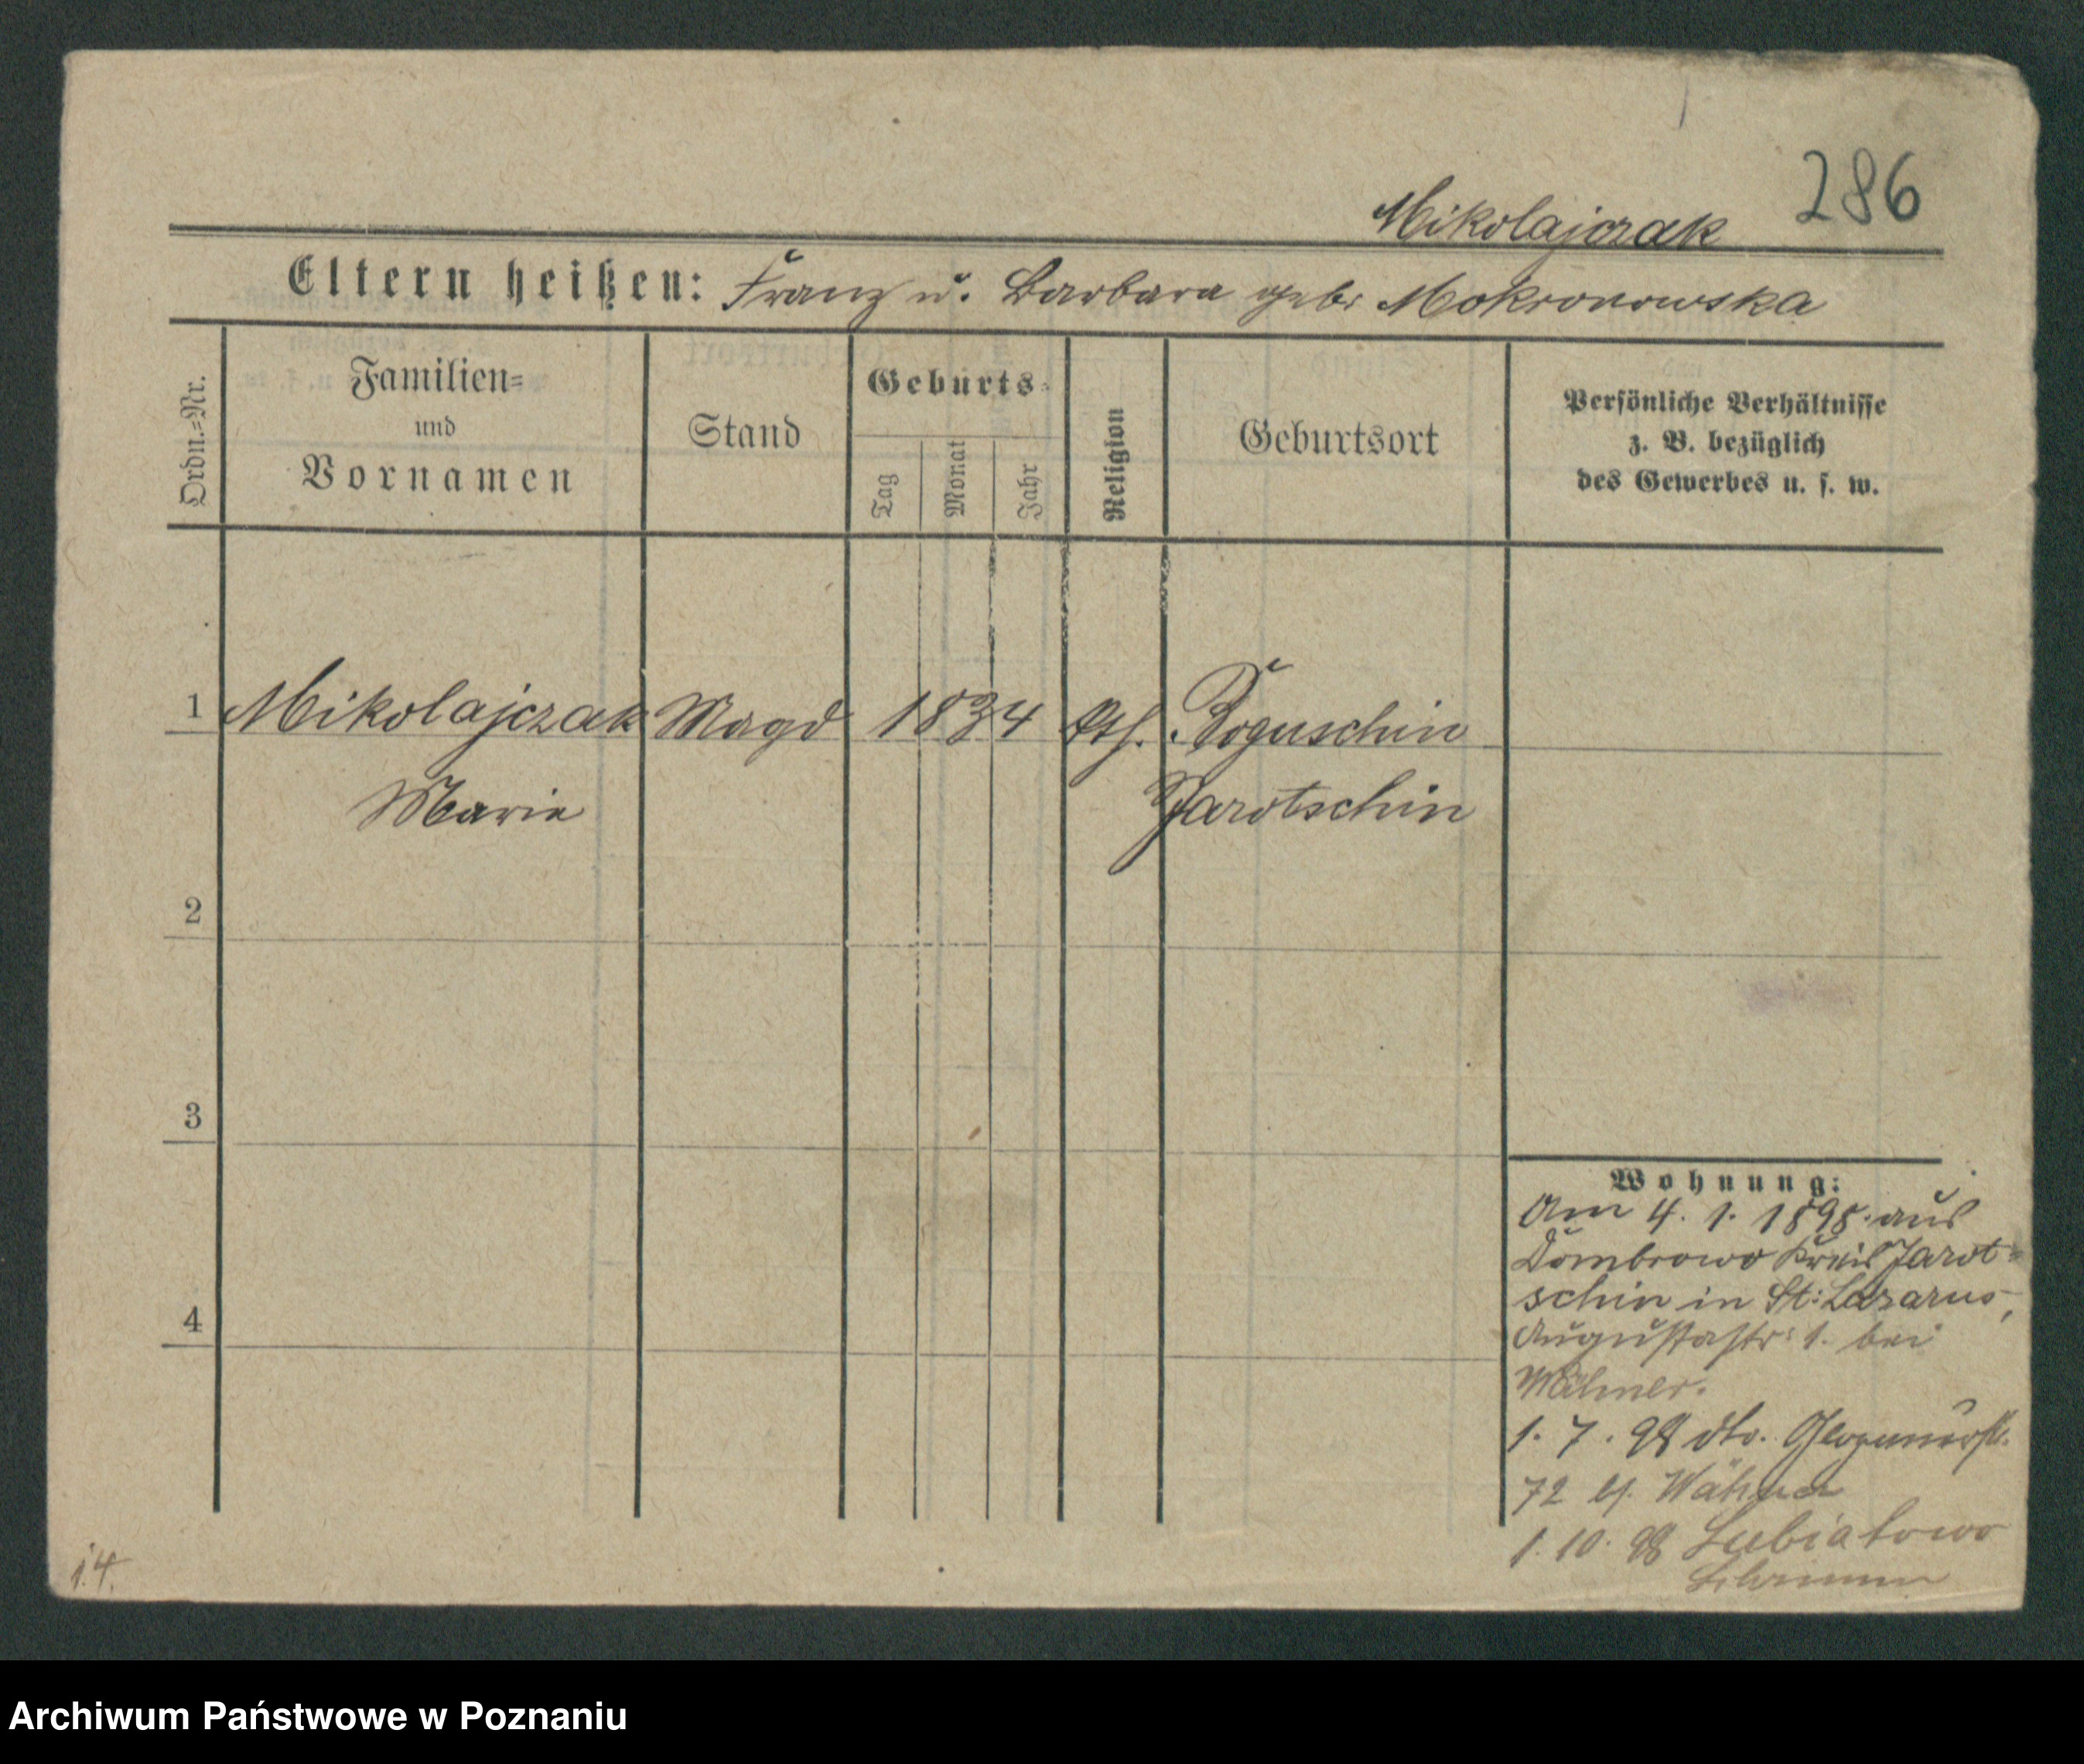 286
Mikolajczak
Eltern heißen: Franz u. Barbara geb. Mokronowska
Ordn.=Nr.
Familien=
und
Vornamen
Stand
Geburts=
Tag
Monat
Jahr
Religion
Geburtsort
Persönliche Verhältnisse
z. B. bezüglich
des Gewerbes u. s. w.
1 Mikolajczak Magd 1834 kth. Boguschin
Marie Jarotschin
2
3
4
Wohnung:
Am 4. 1. 1898. aus
Dombrowo Kreis Jarot=
schin in St: Lazarus,
Augustastr: 1. bei
Wähner.
1. 7. 98 dto. Glogauerstr.
72 b/. Wähner
1. 10. 98 Lubiatowo
Schrimm
1.4.
Archiwum Państwowe w Poznaniu